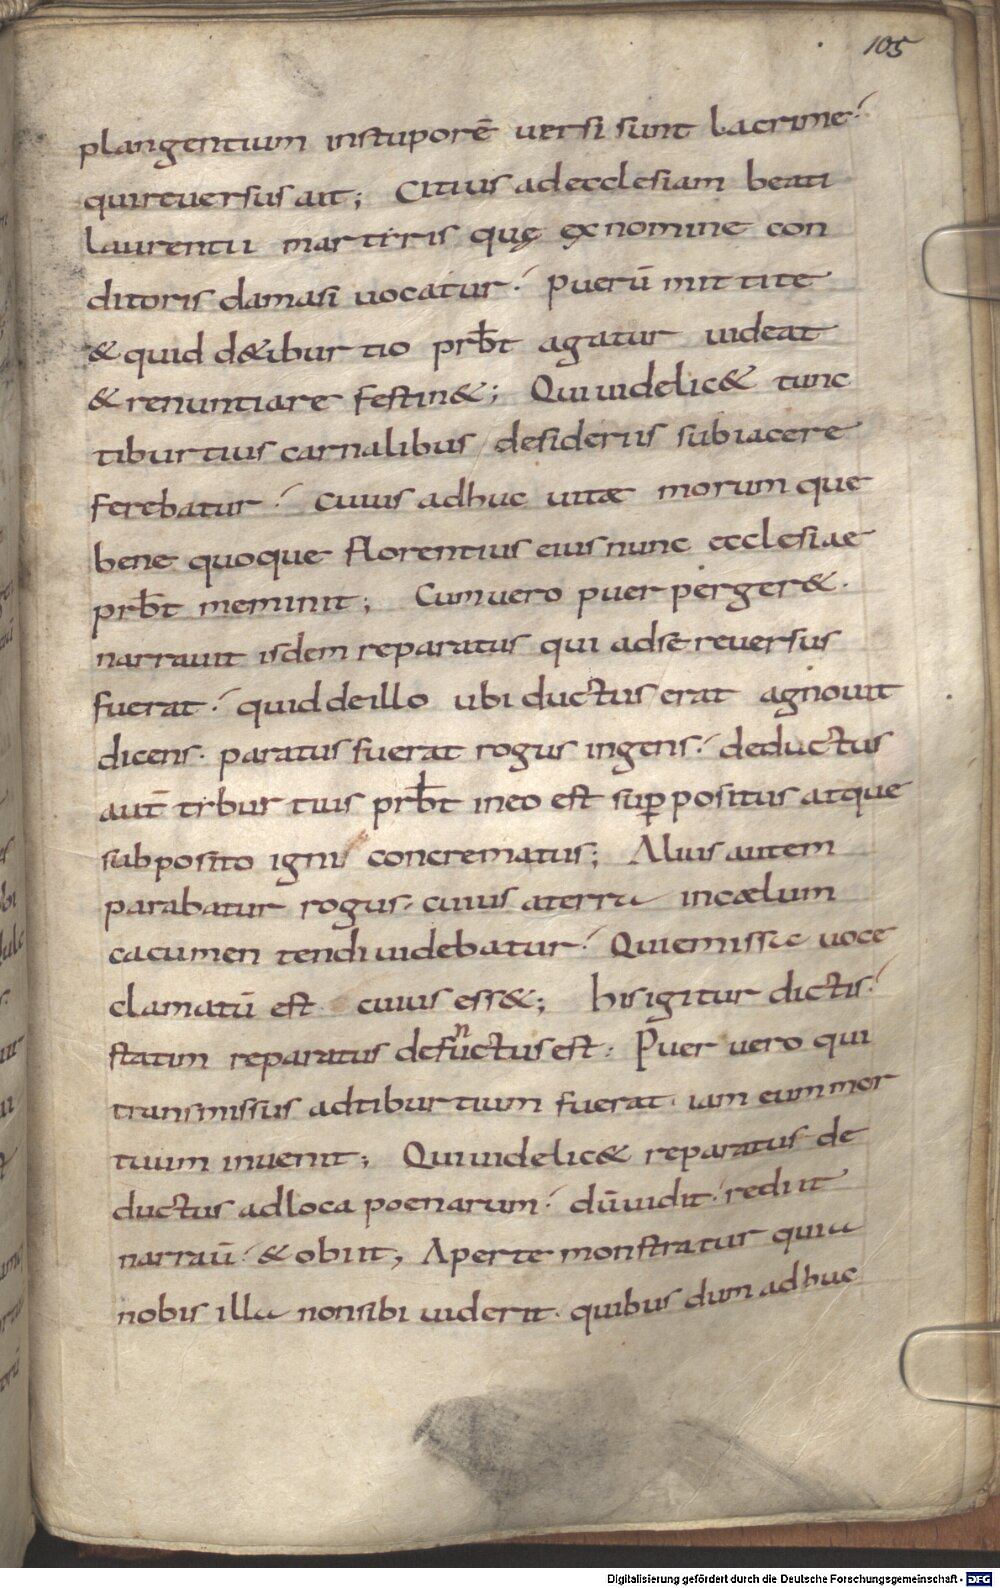 105
plangentium instuporē uersi sunt lacrime·
quireuersus ait; Citius adecclesiam beati
laurentii martiris quę exnomine con
ditoris damasi uocatur· puerū mittite
& quid d&iburtio prb̄t agatur uideat
& renuntiare festin&; Quiuidelic& tunc
tiburtius carnalibus desideriis subiacere
ferebatur· cuius adhuc uitæ morum que
bene quoque florentius eius nunc ecclesiae
prb̄t meminit; Cumuero puer perger&·
narrauit isdem reparatus qui adse reuersus
fuerat· quid deillo ubi ductus erat agnouit
dicens· paratus fuerat rogus ingens· deductus
aut̄ tiburtius prb̄t ineo est suꝑpositus atque
subposito igni concrematus; Alius autem
parabatur rogus· cuius aterra incælum
cacumen tendi uidebatur· Qui emissa uoce
clamatū est cuius ess&; hisigitur dictis·
statim reparatus defunctus est· Puer uero qui
transmissus adtiburtium fuerat· iam eum mor
tuum inuenit; Quiuidelic& reparatus de
ductus adloca poenarum· dū uidit· rediit
narrau̅· & obiit; Aperte monstratur quia
nobis illa nonsibi uiderit· quibus dum adhuc
Digitalisierung gefördert durch die Deutsche Forschungsgemeinschaft - DFG